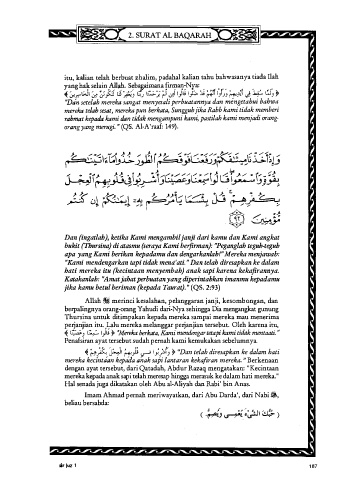 2. SURAT AL BAQARAH
itu, kalian telah berbuat zhalim, padahal kalian tahu bahwasanya tiada Ilah
yang hak selain Allah. Sebagaimana firman-Nya:
﴿ وَلَمَّا سُقِطَ فِي أَيْدِيهِمْ وَرَأَوْا أَنَّهُمْ قَدْ ضَلُّوا قَالُوا لَئِن لَّمْ يَرْحَمْنَا رَبُّنَا وَيَغْفِرْ لَنَا لَنَكُونَنَّ مِنَ الْخَاسِرِينَ ﴾
"Dan setelah mereka sangat menyesali perbuatannya dan mengetahui bahwa
mereka telah sesat, mereka pun berkata, Sungguh jika Rabb kami tidak memberi
rahmat kepada kami dan tidak mengampuni kami, pastilah kami menjadi orang-
orang yang merugi." (QS. Al-A'raaf: 149).
وَإِذْ أَخَذْنَا مِيثَاقَكُمْ وَرَفَعْنَا فَوْقَكُمُ الطُّورَ خُذُوا مَا آتَيْنَاكُم
بِقُوَّةٍ وَاسْمَعُوا قَالُوا سَمِعْنَا وَعَصَيْنَا وَأُشْرِبُوا فِي قُلُوبِهِمُ الْعِجْلَ
بِكُفْرِهِمْ قُلْ بِئْسَمَا يَأْمُرُكُم بِهِ إِيمَانُكُمْ إِن كُنتُم
مُّؤْمِنِينَ ٩٣
Dan (ingatlah), ketika Kami mengambil janji dari kamu dan Kami angkat
bukit (Thursina) di atasmu (seraya Kami berfirman): "Peganglah teguh-teguh
apa yang Kami berikan kepadamu dan dengarkanlah!" Mereka menjawab:
"Kami mendengarkan tapi tidak menta'ati." Dan telah diresapkan ke dalam
hati mereka itu (kecintaan menyembah) anak sapi karena kekafirannya.
Katakanlah: "Amat jahat perbuatan yang diperintahkan imanmu kepadamu
jika kamu betul beriman (kepada Taurat)." (QS. 2:93)
Allah ﷻ merinci kesalahan, pelanggaran janji, kesombongan, dan
berpalingnya orang-orang Yahudi dari-Nya sehingga Dia mengangkat gunung
Thursina untuk ditimpakan kepada mereka sampai mereka mau menerima
perjanjian itu. Lalu mereka melanggar perjanjian tersebut. Oleh karena itu,
﴿ قَالُوا سَمِعْنَا وَعَصَيْنَا ﴾ "Mereka berkata, Kami mendengar tetapi kami tidak mentaati."
Penafsiran ayat tersebut sudah pernah kami kemukakan sebelumnya.
﴿ وَأُشْرِبُوا فِي قُلُوبِهِمُ الْعِجْلَ بِكُفْرِهِمْ ﴾ "Dan telah diresapkan ke dalam hati
mereka kecintaan kepada anak sapi lantaran kekafiran mereka." Berkenaan
dengan ayat tersebut, dari Qatadah, Abdur Razaq mengatakan: "Kecintaan
mereka kepada anak sapi telah meresap hingga merasuk ke dalam hati mereka."
Hal senada juga dikatakan oleh Abu al-Aliyah dan Rabi' bin Anas.
Imam Ahmad pernah meriwayatkan, dari Abu Darda', dari Nabi ﷺ,
beliau bersabda:
( حُبُّكَ الشَّيْءَ يُعْمِي وَيُصِمُّ. )
Juz 1
187